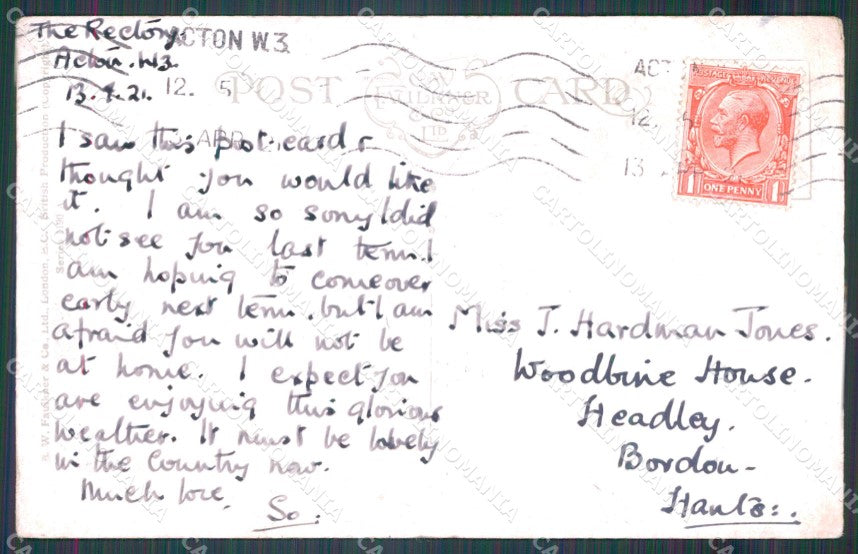 The Rectory
Acton. W3.
13.4.21.
ACTON W.3.
12. 5
APR
POST CARD
FAULKNER
& CO
LTD.
ACT
12.
13
POSTAGE REVENUE
1 ONE PENNY 1
I saw this post-card &
thought you would like
it. I am so sorry I did
not see you last term. I
am hoping to come over
early next term. but I am
afraid you will not be
at home. I expect you
are enjoying this glorious
weather. It must be lovely
in the country now.
Much love.
So.
Miss J. Hardman Jones.
Woodbine House.
Headley.
Bordon-
Hants:.
C. W. Faulkner & Co., Ltd., London, E.C. British Production (Copyright)
Series
CARTOLINOMANIA